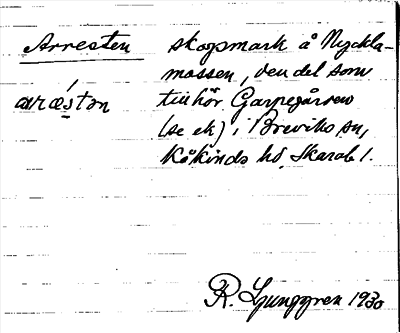 Arresten skogsmark å Nyckla-
mossen, den del som
aræ´stən tillhör Garpegården
(se ek) i Breviks sn,
Kåkinds hd, Skarab l.
R. Ljunggren 1930